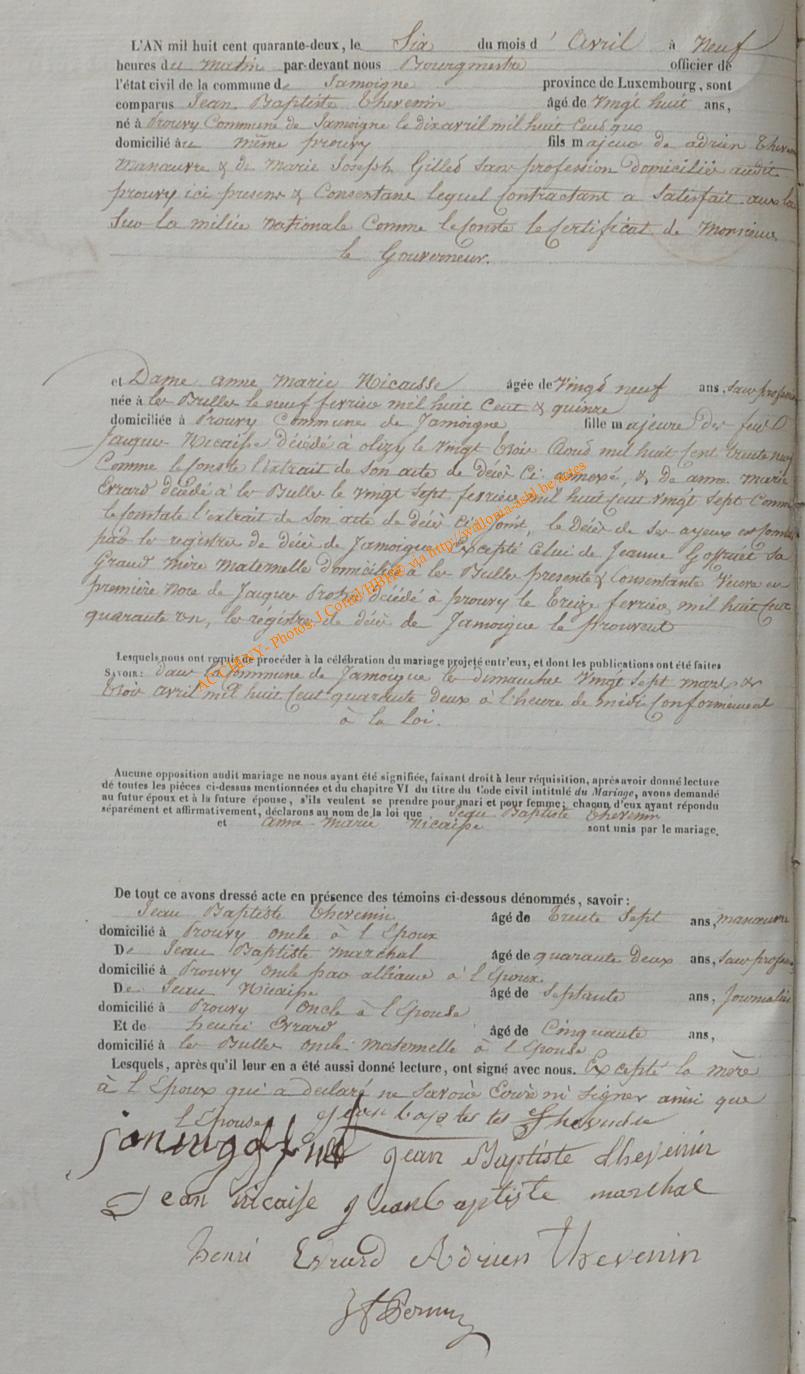 L'AN mil huit cent quarante-deux, le Six du mois d' Avril à Neuf
heures du Matin par-devant nous Bourgmestre officier de
l'état civil de la commune de Jamoigne province de Luxembourg, sont
comparus Jean Baptiste Thevenin âgé de Vingt huit ans,
né à Prouvy Commune de Jamoigne le dix avril mil huit Cent
domicilié au même prouvy fils majeur de adrien Theven
Manœuvre & de Marie Joseph Gilles Sans profession domiciliés audit
prouvy ici présens & Consentans lequel Contractant a Satisfait aux loi
Sur la milice Nationale Comme le Conste le Certificat de Monsieur
le Gouverneur.
et Dame anne Marie Nicaisse âgée de Vingt neuf ans, Sans profess
née à les Bulles le neuf fevrier mil huit Cent & quinze
domiciliée à Prouvy Commune de Jamoigne fille majeure des feu
Jaque Nicaise décédé à olizy le Vingt trois Août mil huit Cent trente neuf
Comme le Conste l'extrait de Son acte de décès Ci annexé, & de anne Marie
Errard décédé à les Bulles le Vingt Sept fevrier mil huit Cent Vingt Sept Comme
le Constate l'extrait de Son acte de décès Ci joint, le Décès de Ses ayeux est
par le registre de décès de Jamoigne, Excepté Celui de Jeanne Goffinet Sa
Grand mère Maternelle domiciliée à les Bulles présente & Consentante Veuve en
première Noce de Jaque décédé à prouvy le treize fevrier mil huit Cent
quarante un, le régistre de décès de Jamoigne le Prouvent
Lesquels nous ont requis de procéder à la célébration du mariage projeté entr'eux, et dont les publications ont été faites
SAVOIR: dans la Commune de Jamoigne les dimanches Vingt Sept mars &
trois avril mil huit Cent quarante deux à l'heure de midi Conformement
à la loi.
Aucune opposition audit mariage ne nous ayant été signifiée, faisant droit à leur réquisition, après avoir donné lecture
de toutes les pièces ci-dessus mentionnées et du chapitre VI du titre du Code civil intitulé du Mariage, avons demandé
au futur époux et à la future épouse, s'ils veulent se prendre pour mari et pour femme; chacun d'eux ayant répondu
séparément et affirmativement, déclarons au nom de la loi que Jean Baptiste Thevenin
et anne Marie Nicaise sont unis par le mariage.
De tout ce avons dressé acte en présence des témoins ci-dessous dénommés, savoir:
Jean Baptiste Thevenin âgé de Trente Sept ans, manœuvre
domicilié à Prouvy oncle à l'Epoux
De Jean Baptiste Marchal âgé de quarante deux ans, Sans profess
domicilié à Prouvy Oncle par alliance à l'Epoux.
De Jean Nicaise âgé de Septante ans, Journalier
domicilié à Prouvy Oncle à l'Epouse
Et de henri Errard âgé de Cinquante ans,
domicilié à les Bulles oncle Maternelle à l'Epouse
Lesquels, après qu'il leur en a été aussi donné lecture, ont signé avec nous. Excepté la mère
à l'Epoux qui a declaré ne Savoir Ecrire ni Signer ainsi que
l'Epouse Thevenin
jean Baptiste thevenin
Jean Nicaise jean baptiste marchal
henri Errard Adrien Thevenin
ACTHEX - Photos J.Cornil/HBH© via http://wallonia-asbl.be/actes